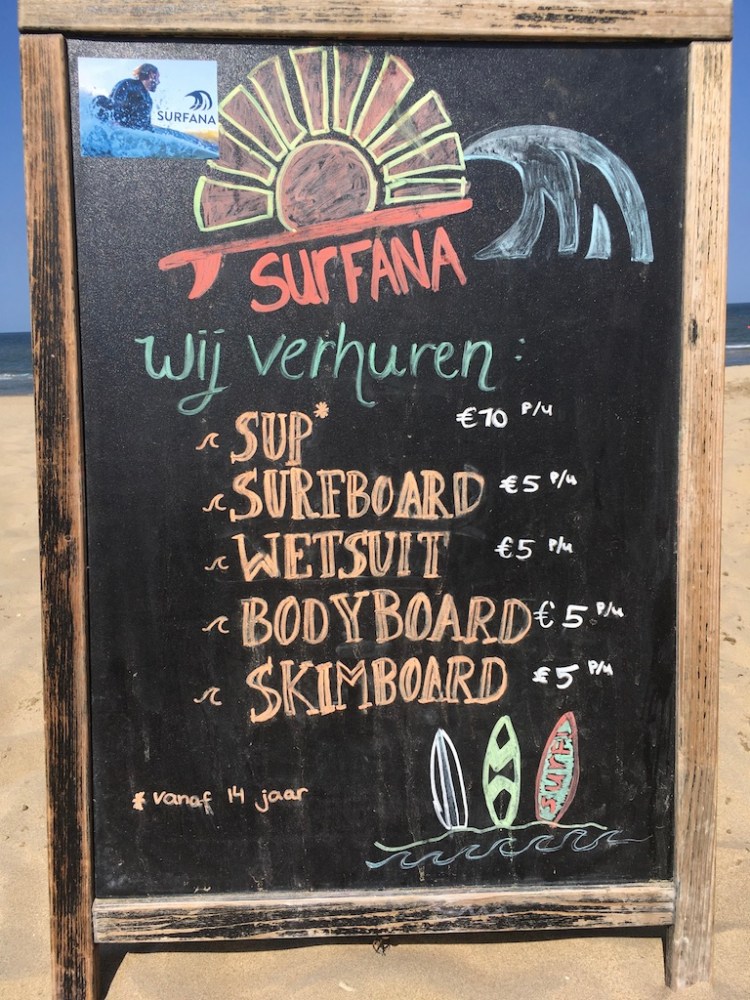 SURFANA
SURFANA
Wij verhuren :
SUP* €10 P/u
SURFBOARD €5 P/u
WETSUIT €5 P/u
BODYBOARD €5 P/u
SKIMBOARD €5 P/u
* vanaf 14 jaar
SURF!